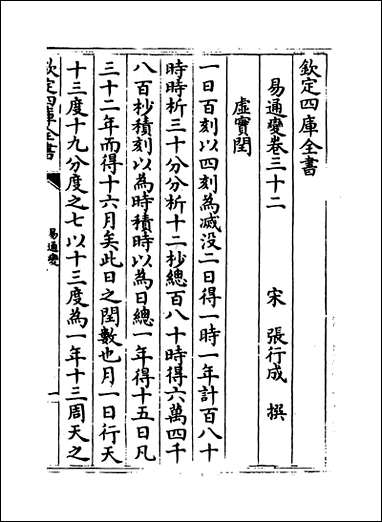 欽定四庫全書
易通變卷三十二
宋 張行成 撰
虛實閏
一日百刻以四刻為滅没二日得一時一年計百八十
時時析三十分分析十二抄總百八十時得六萬四千
八百抄積刻以為時積時以為日總一年得十五日凡
三十二年而得十六月矣此日之閏數也月一日行天
十三度十九分度之七以十三度為一年十三周天之
欽定四庫全書
易通變
一